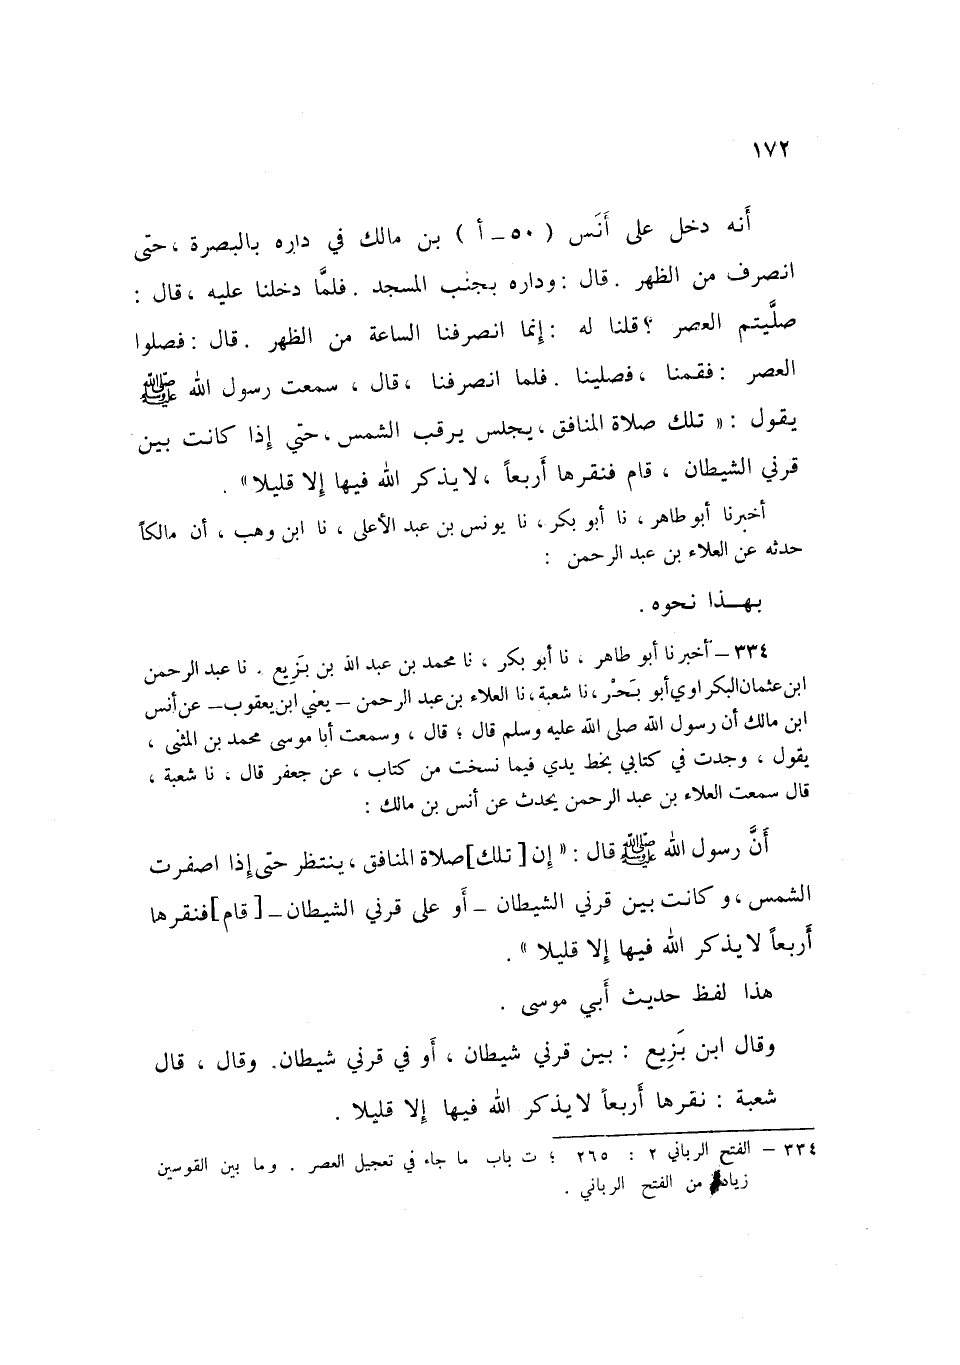 ١٧٢
أَنه دخل على أَنَس ( ٥٠ ــ أ ) بن مالك في داره بالبصرة ، حتّى
انصرف من الظهر . قال : وداره بجنب المسجد . فلمَّا دخلنا عليه ، قال :
صلَّيتم العصر ؟ قلنا له : إِنما انصرفنا الساعة من الظهر . قال : فصلوا
العصر : فقمنا ، فصلينا . فلما انصرفنا ، قال ، سمعت رسول الله ﷺ
يقول : « تلك صلاة المنافق ، يجلس يرقب الشمس ، حتّي إذا كانت بين
قرني الشيطان ، قام فنقرها أَربعاً ، لا يذكر الله فيها إِلا قليلا » .
أخبرنا أبو طاهر ، نا أبو بكر ، نا يونس بن عبد الأعلى ، نا ابن وهب ، أن مالكاً
حدثه عن العلاء بن عبد الرحمن :
بهــذا نحوه .
٣٣٤ ــ أخبرنا أبو طاهر ، نا أبو بكر ، نا محمد بن عبد الله بن بَزِيع . نا عبد الرحمن
ابن عثمان البكراوي أبو بَحْر ، نا شعبة ، نا العلاء بن عبد الرحمن ــ يعني ابن يعقوب ــ عن أنس
ابن مالك أن رسول الله صلى الله عليه وسلم قال ؛ قال ، وسمعت أبا موسى محمد بن المثنى ،
يقول ، وجدت في كتابي بخط يدي فيما نسخت من كتاب ، عن جعفر قال ، نا شعبة ،
قال سمعت العلاء بن عبد الرحمن يحدث عن أنس بن مالك :
أَنَّ رسول الله ﷺ قال : « إن [ تلك ] صلاة المنافق ، ينتظر حتّى إذا اصفرت
الشمس ، و كانت بين قرني الشيطان ــ أَو على قرني الشيطان ــ [ قام ] فنقرها
أَربعاً لا يذكر الله فيها إلا قليلا » .
هذا لفظ حديث أَبي موسى .
وقال ابن بَزِيع : بين قرني شيطان ، أَو في قرني شيطان. وقال ، قال
شعبة : نقرها أَربعاً لا يذكر الله فيها إلا قليلا .
٣٣٤ ــ الفتح الرباني ٢ : ٢٦٥ ؛ ت باب ما جاء في تعجيل العصر . وما بين القوسين
زيادة من الفتح الرباني .